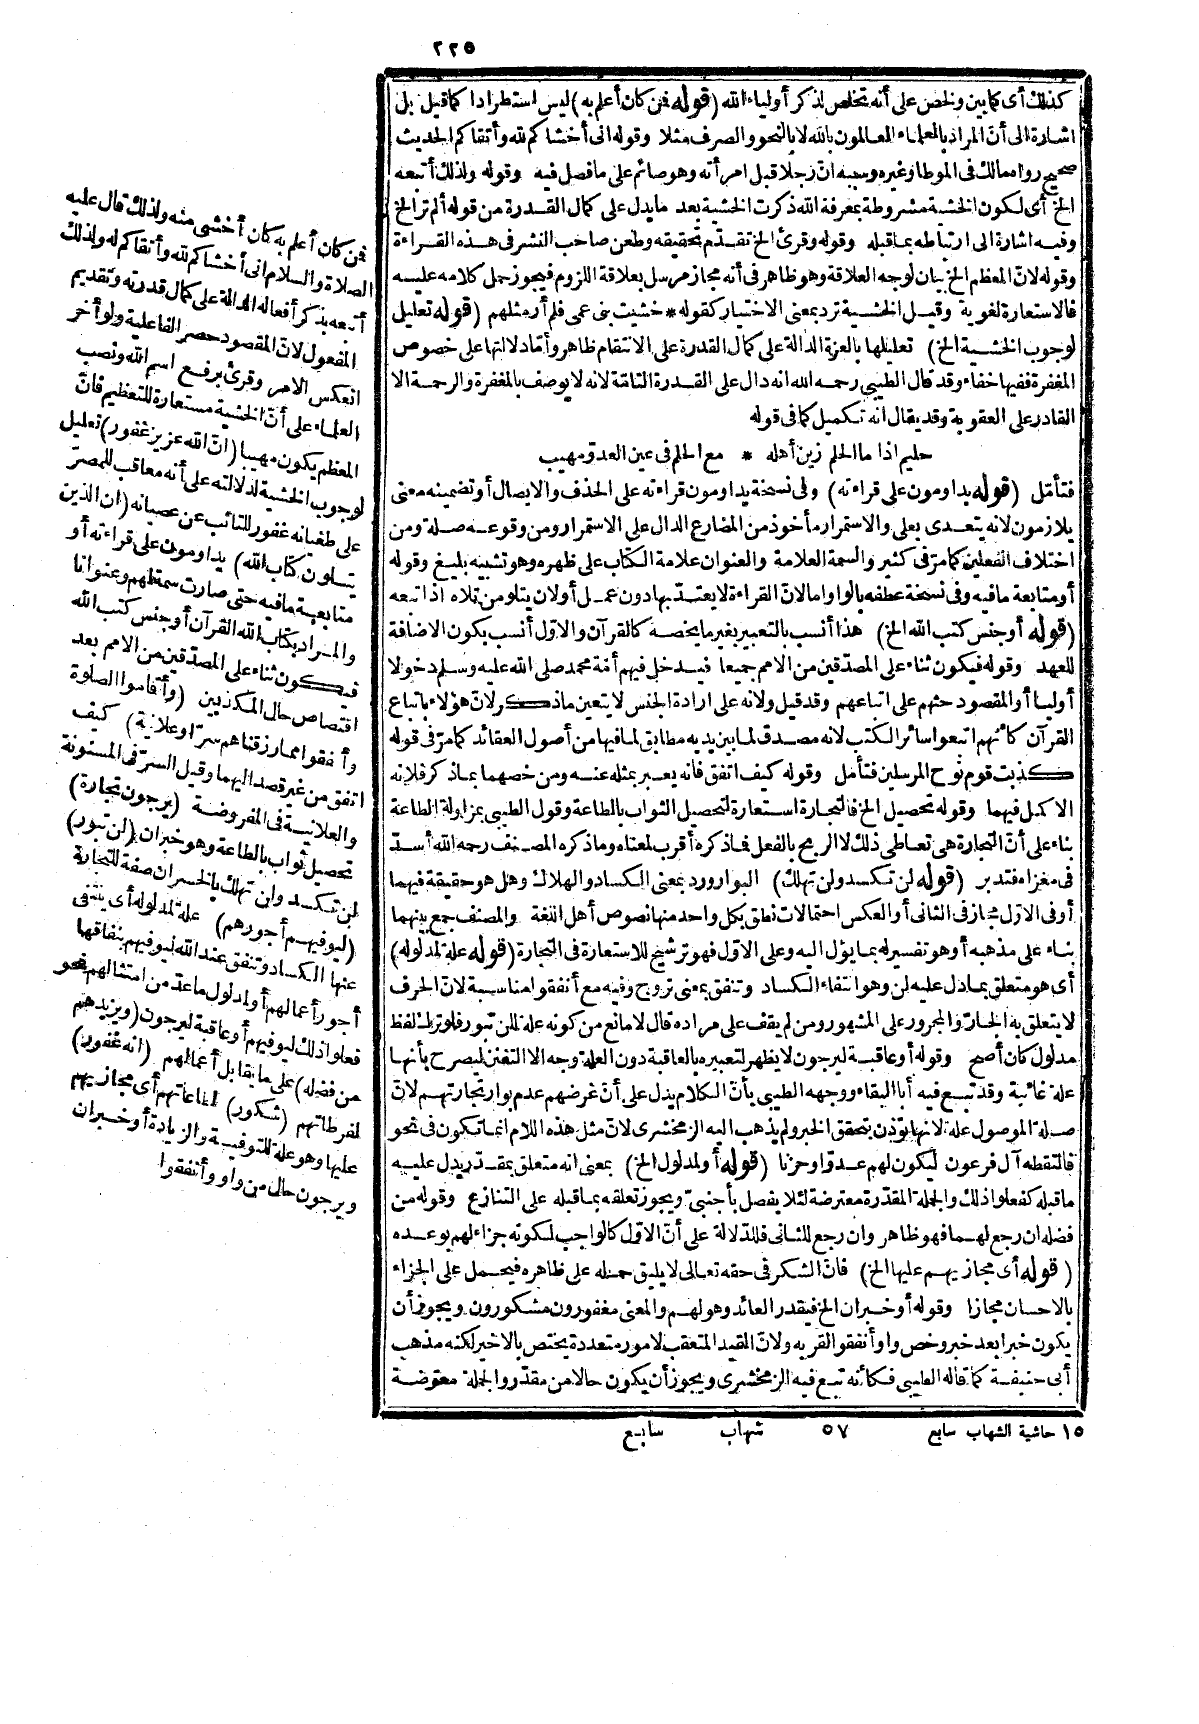 ٢٢٥
كذلك أى كما بين ولخص على أنه تخلص لذكر أولياء الله (قوله فمن كان أعلم به) ليس استطرادا كما قيل بل
اشارة الى أنّ المراد بالعلماء العالمون بالله لا بالنحو والصرف مثلا وقوله انى أخشاكم لله وأتقاكم الحديث
صحيح رواه مالك فى الموطا وغيره وسببه انّ رجلا قبل امرأته وهو صائم على ما فصل فيه وقوله ولذلك أتبعه
الخ أى لكون الخشية مشروطة بمعرفة الله ذكرت الخشية بعد ما يدل على كمال القدرة من قوله ألم تر الخ
وفيه اشارة الى ارتباطه بما قبله وقوله وقرئ الخ تقدّم تحقيقه وطعن صاحب النشر فى هذه القراءة
وقوله لانّ المعظم الخ بيان لوجه العلاقة وهو ظاهر فى أنه مجاز مرسل بعلاقة اللزوم فيجوز حمل كلامه عليه
فالاستعارة لغوية وقيل الخشية ترد بمعنى الاختيار كقوله * خشيت بنى عمى فلم أر مثلهم (قوله تعليل
لوجوب الخشية الخ) تعليلها بالعزة الدالة على كمال القدرة على الانتقام ظاهر وأمّا دلالتها على خصوص
المغفرة ففيها خفاء وقد قال الطيبى رحمه الله انه دال على القدرة التامّة لانه لا يوصف بالمغفرة والرحمة الا
القادر على العقوبة وقد يقال انه تكميل كما فى قوله
حليم اذا ما الحلم زين أهله * مع الحلم فى عين العدو مهيب
فتأمّل (قوله يداومون على قراءته) وفى نسخة يداومون قراءته على الحذف والايصال أو تضمينه معنى
يلازمون لانه يتعدى بعلى والاستمرار مأخوذ من المضارع الدال على الاستمرار ومن وقوعه صلة ومن
اختلاف الفعلين كما مرّ فى كثير والسمة العلامة والعنوان علامة الكتاب على ظهره وهو تشبيه بليغ وقوله
أو متابعة ما فيه وفى نسخة عطفه بالواو امالانّ القراءة لا يعتدّ بها دون عمل أو لان يتلو من تلاه اذا تبعه
(قوله أو جنس كتب الله الخ) هذا أنسب بالتعبير بغير ما يخصه كالقرآن والاوّل أنسب بكون الاضافة
للعهد وقوله فيكون ثناء على المصدّقين من الامم جميعا فيدخل فيهم أمّة محمد صلى الله عليه وسلم دخولا
أوليا أو المقصود حثهم على اتباعهم وقد قيل ولانه على ارادة الجنس لا يتعين ماذكر لانّ هؤلاء باتباع
القرآن كأنهم اتبعوا سائر الكتب لانه مصدق لما بين يديه مطابق لما فيها من أصول العقائد كما مرّ فى قوله
كذبت قوم نوح المرسلين فتأمل وقوله كيف اتفق فانه يعبر بمثله عنه ومن خصهما بماذكر فلانه
الاكمل فيهما وقوله تحصيل الخ فالتجارة استعارة لتحصيل الثواب بالطاعة وقول الطيبى بمزاولة الطاعة
بناء على أنّ التجارة هى تعاطى ذلك لا الربح بالفعل فماذكره أقرب لمعناه وماذكره المصنف رحمه الله أسدّ
فى مغزاه فتدبر (قوله لن تكسد ولن تهلك) البوار ورد بمعنى الكساد والهلاك وهل هو حقيقة فيهما
أو فى الاوّل مجاز فى الثانى أو العكس احتمالات نطق بكل واحد منها نصوص أهل اللغة والمصنف جمع بينهما
بناء على مذهبه أو هو تفسير له بما يؤل اليه وعلى الاوّل فهو ترشيح للاستعارة فى التجارة (قوله علة لمدلوله)
أى هو متعلق بمادل عليه لن وهو انتفاء الكساد وتنفق بمعنى تروج وفيه مع أنفقوا مناسبة لانّ الحرف
لا يتعلق به الجارّ والمجرور على المشهور ومن لم يقف على مراده قال لا مانع من كونه علة للن تبور فلو ترك لفظ
مدلول كان أصح وقوله أو عاقبة ليرجون لا يظهر لتعبيره بالعاقبة دون العلة وجه الا التفنن ليصرح بأنها
علة غائية وقد تبع فيه أبا البقاء ووجهه الطيبى بأنّ الكلام يدل على أنّ غرضهم عدم بوار تجارتهم لانّ
صلة الموصول علة لانها تؤذن بتحقق الخبر ولم يذهب اليه الزمخشرى لانّ مثل هذه اللام انما تكون فى نحو
فالتقطه آل فرعون ليكون لهم عدوّا وحزنا (قوله أو لمدلول الخ) بمعنى انه متعلق بمقدّر يدل عليه
ما قبله كفعلوا ذلك والجملة المقدّرة معترضة لئلا يفصل بأجنبىّ ويجوز تعلقه بما قبله على التنازع وقوله من
فضله ان رجع لهما فهو ظاهر وان رجع للثانى فللدّلالة على أنّ الاوّل كالواجب لكونه جزاء لهم بوعده
(قوله أى مجازيهم عليها الخ) فانّ الشكر فى حقه تعالى لا يليق حمله على ظاهره فيحمل على الجزاء
بالاحسان مجازا وقوله أو خبران الخ فيقدر العائد وهو لهم والمعنى مغفورون مشكورون ويجوز أن
يكون خبرا بعد خبر وخص واو أنفقوا لقربه ولانّ القيد المتعقب لامور متعددة يختص بالاخير لكنه مذهب
أبى حنيفة كما قاله الطيبى فكأنه تبع فيه الزمخشرى ويجوز أن يكون حالا من مقدّر والجملة معترضة
١٥ حاشية الشهاب سابع ٥٧ شهاب سابع
فمن كان أعلم به كان أخشى منه ولذلك قال عليه
الصلاة والسلام انى أخشاكم لله وأتقاكم له ولذلك
أتبعه بذكر أفعاله الدالة على كمال قدرته وتقديم
المفعول لانّ المقصود حصر الفاعلية ولو أخر
انعكس الامر وقرئ برفع اسم الله ونصب
العلماء على أنّ الخشية مستعارة للتعظيم فانّ
المعظم يكون مهيبا (انّ الله عزيز غفور) تعليل
لوجوب الخشية لدلالته على أنه معاقب للمصرّ
على طغيانه غفور للتائب عن عصيانه (ان الذين
يتلون كتاب الله) يداومون على قراءته أو
متابعة ما فيه حتى صارت سمة لهم وعنوانا
والمراد بكتاب الله القرآن أو جنس كتب الله
فيكون ثناء على المصدّقين من الامم بعد
اقتصاص حال المكذبين (وأقاموا الصلوة
وأنفقوا مما رزقناهم سرّا وعلانية) كيف
اتفق من غير قصد اليهما وقيل السرّ فى المسنونة
والعلانية فى المفروضة (يرجون تجارة)
تحصيل ثواب بالطاعة وهو خبران (لن تبور)
لن تكسد ولن تهلك بالخسران صفة للتجارة
(ليوفيهم أجورهم) علة لمدلوله أى ينتفى
عنها الكساد وتنفق عند الله ليوفيهم بنفاقها
أجور أعمالهم أو لمدلول ماعدّ من امتثالهم نحو
فعلوا ذلك ليوفيهم أو عاقبة ليرجون (ويزيدهم
من فضله) على ما يقابل أعمالهم (انه غفور)
لفرطاتهم (شكور) لطاعاتهم أى مجازيهم
عليها وهو علة للتوفية والزيادة أو خبران
ويرجون حال من واو وأنفقوا